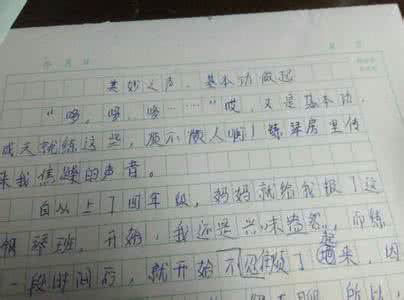 美妙之声，基本功做起
“哆，哆，哆……”哎，又是基本功，
成天就练这些，真不做人啊！练琴房里传
来我焦躁的声音。
自从上了四年级，妈妈就给我报了这
钢琴班，开始，我还是兴味盎然，而练
一段时间后，就开始不起来，因